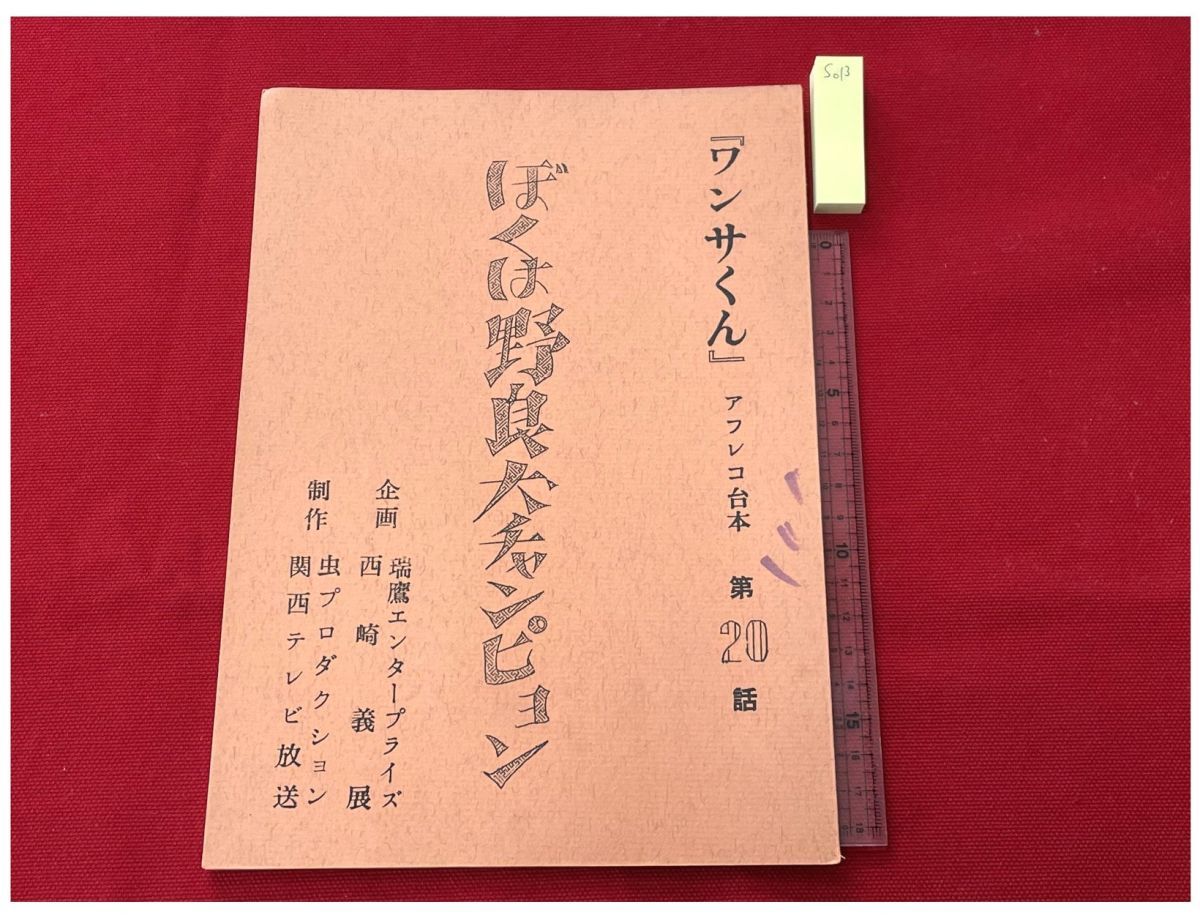 『ワンサくん』 アフレコ台本 第20話
ぼくは野良犬チャンピョン
企画 瑞鷹エンタープライズ
西崎義展
制作 虫プロダクション
関西テレビ放送
S013
0
5
10
15